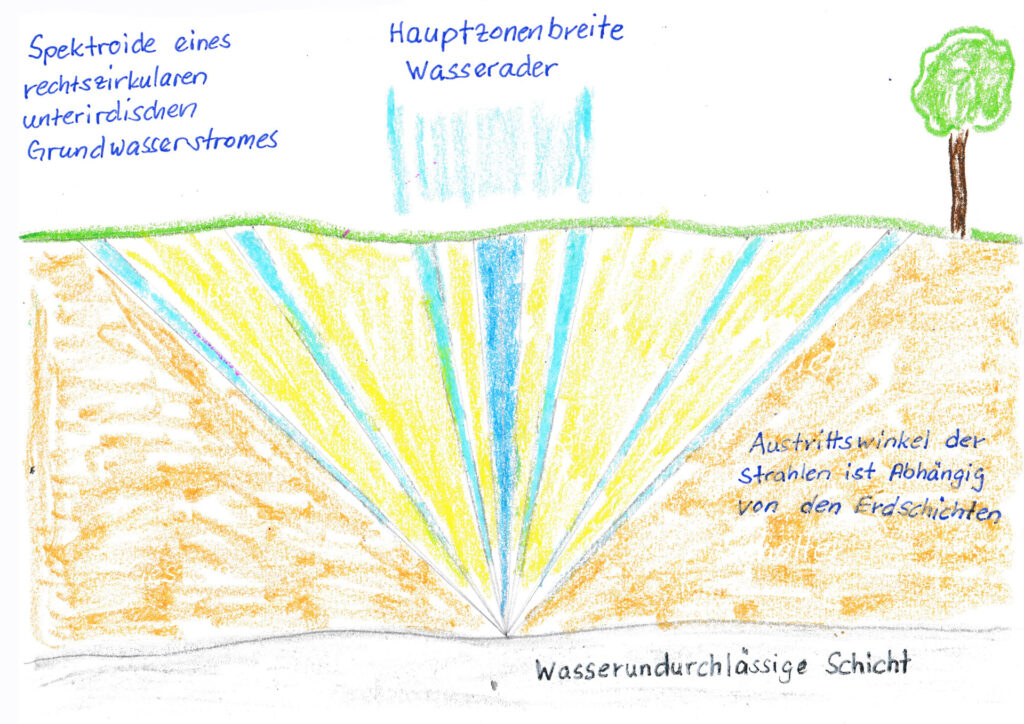 Spektroide eines
rechtszirkularen
unterirdischen
Grundwasserstromes
Hauptzonenbreite
Wasserader
Austrittswinkel der
Strahlen ist Abhängig
von den Erdschichten
Wasserundurchlässige Schicht